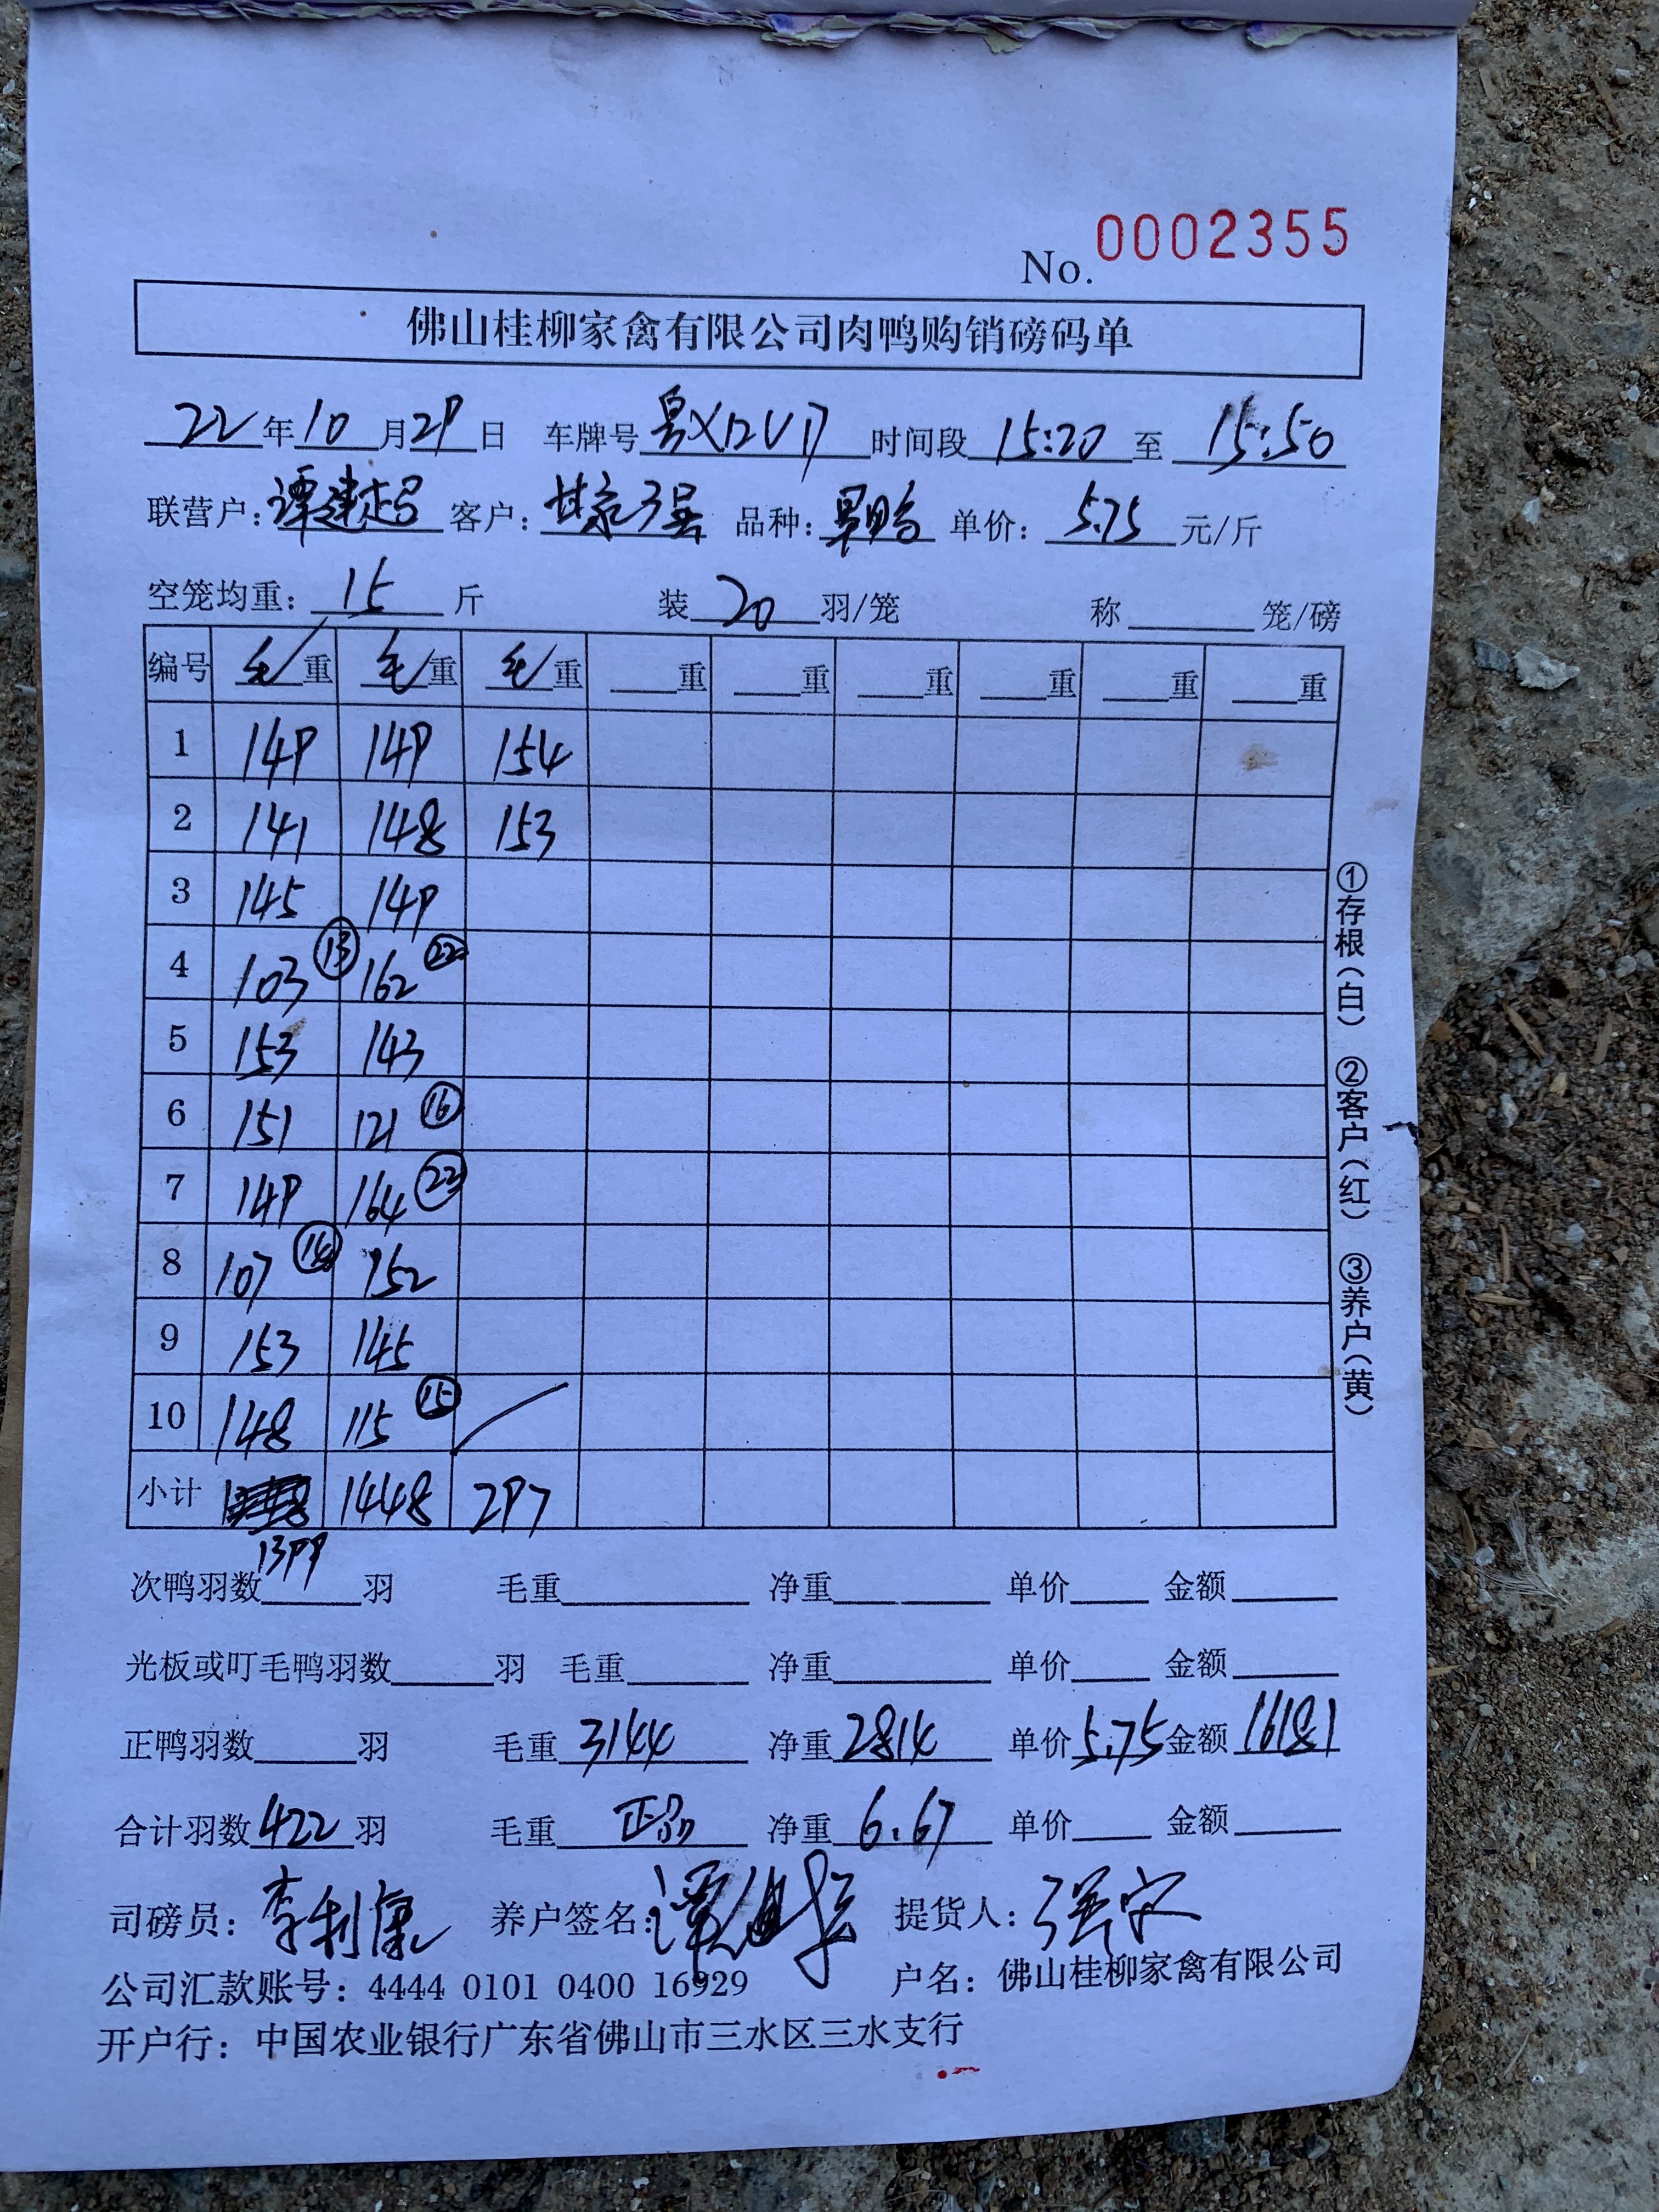 No. 0002355
佛山桂柳家禽有限公司肉鸭购销磅码单
22年10月29日 车牌号 时间段15:20至15:50
联营户:谭建超 客户: 品种: 单价:5.75元/斤
空笼均重:15斤 装20羽/笼 称 笼/磅
编号 毛重 毛重 毛重 重 重 重 重 重 重
1 149 149 154
2 141 148 153
3 145 149
4 103 ⑬ 162 ㉒
5 153 143
6 151 121 ⑯
7 149 164
8 107 ⑭ 152
9 153 145
10 148 115 ⑮
小计 1448 297
1399
次鸭羽数 羽 毛重 净重 单价 金额
光板或叮毛鸭羽数 羽 毛重 净重 单价 金额
正鸭羽数 羽 毛重3144 净重2814 单价5.75 金额16181
合计羽数422羽 毛重 净重6.67 单价 金额
司磅员:李利康 养户签名: 提货人:
公司汇款账号:4444 0101 0400 16929 户名:佛山桂柳家禽有限公司
开户行:中国农业银行广东省佛山市三水区三水支行
①存根(白) ②客户(红) ③养户(黄)